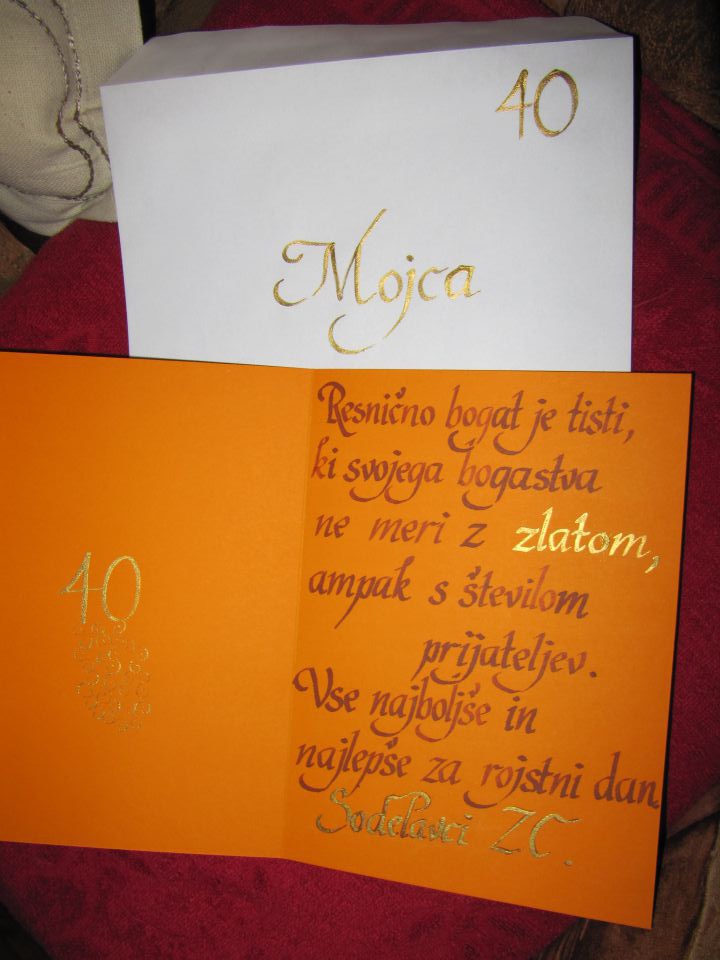 40
Mojca
40
Resnično bogat je tisti,
ki svojega bogastva
ne meri z zlatom,
ampak s številom
prijateljev.
Vse najboljše in
najlepše za rojstni dan
Sodelavci ZC.